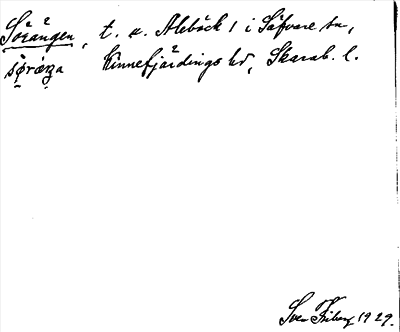 Sörängen, t. u. Alebäck 1 i Säfvare sn,
Kinnefjärdings hd, Skarab. l.
Sven Friberg 1929.